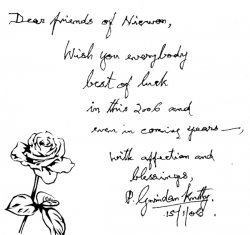 Dear friends of Nirwon,
Wish you everybody
best of luck
in this 2006 and
even in coming years —,
With affection and
blessings,
P. Govindan Kutty
15/1/06